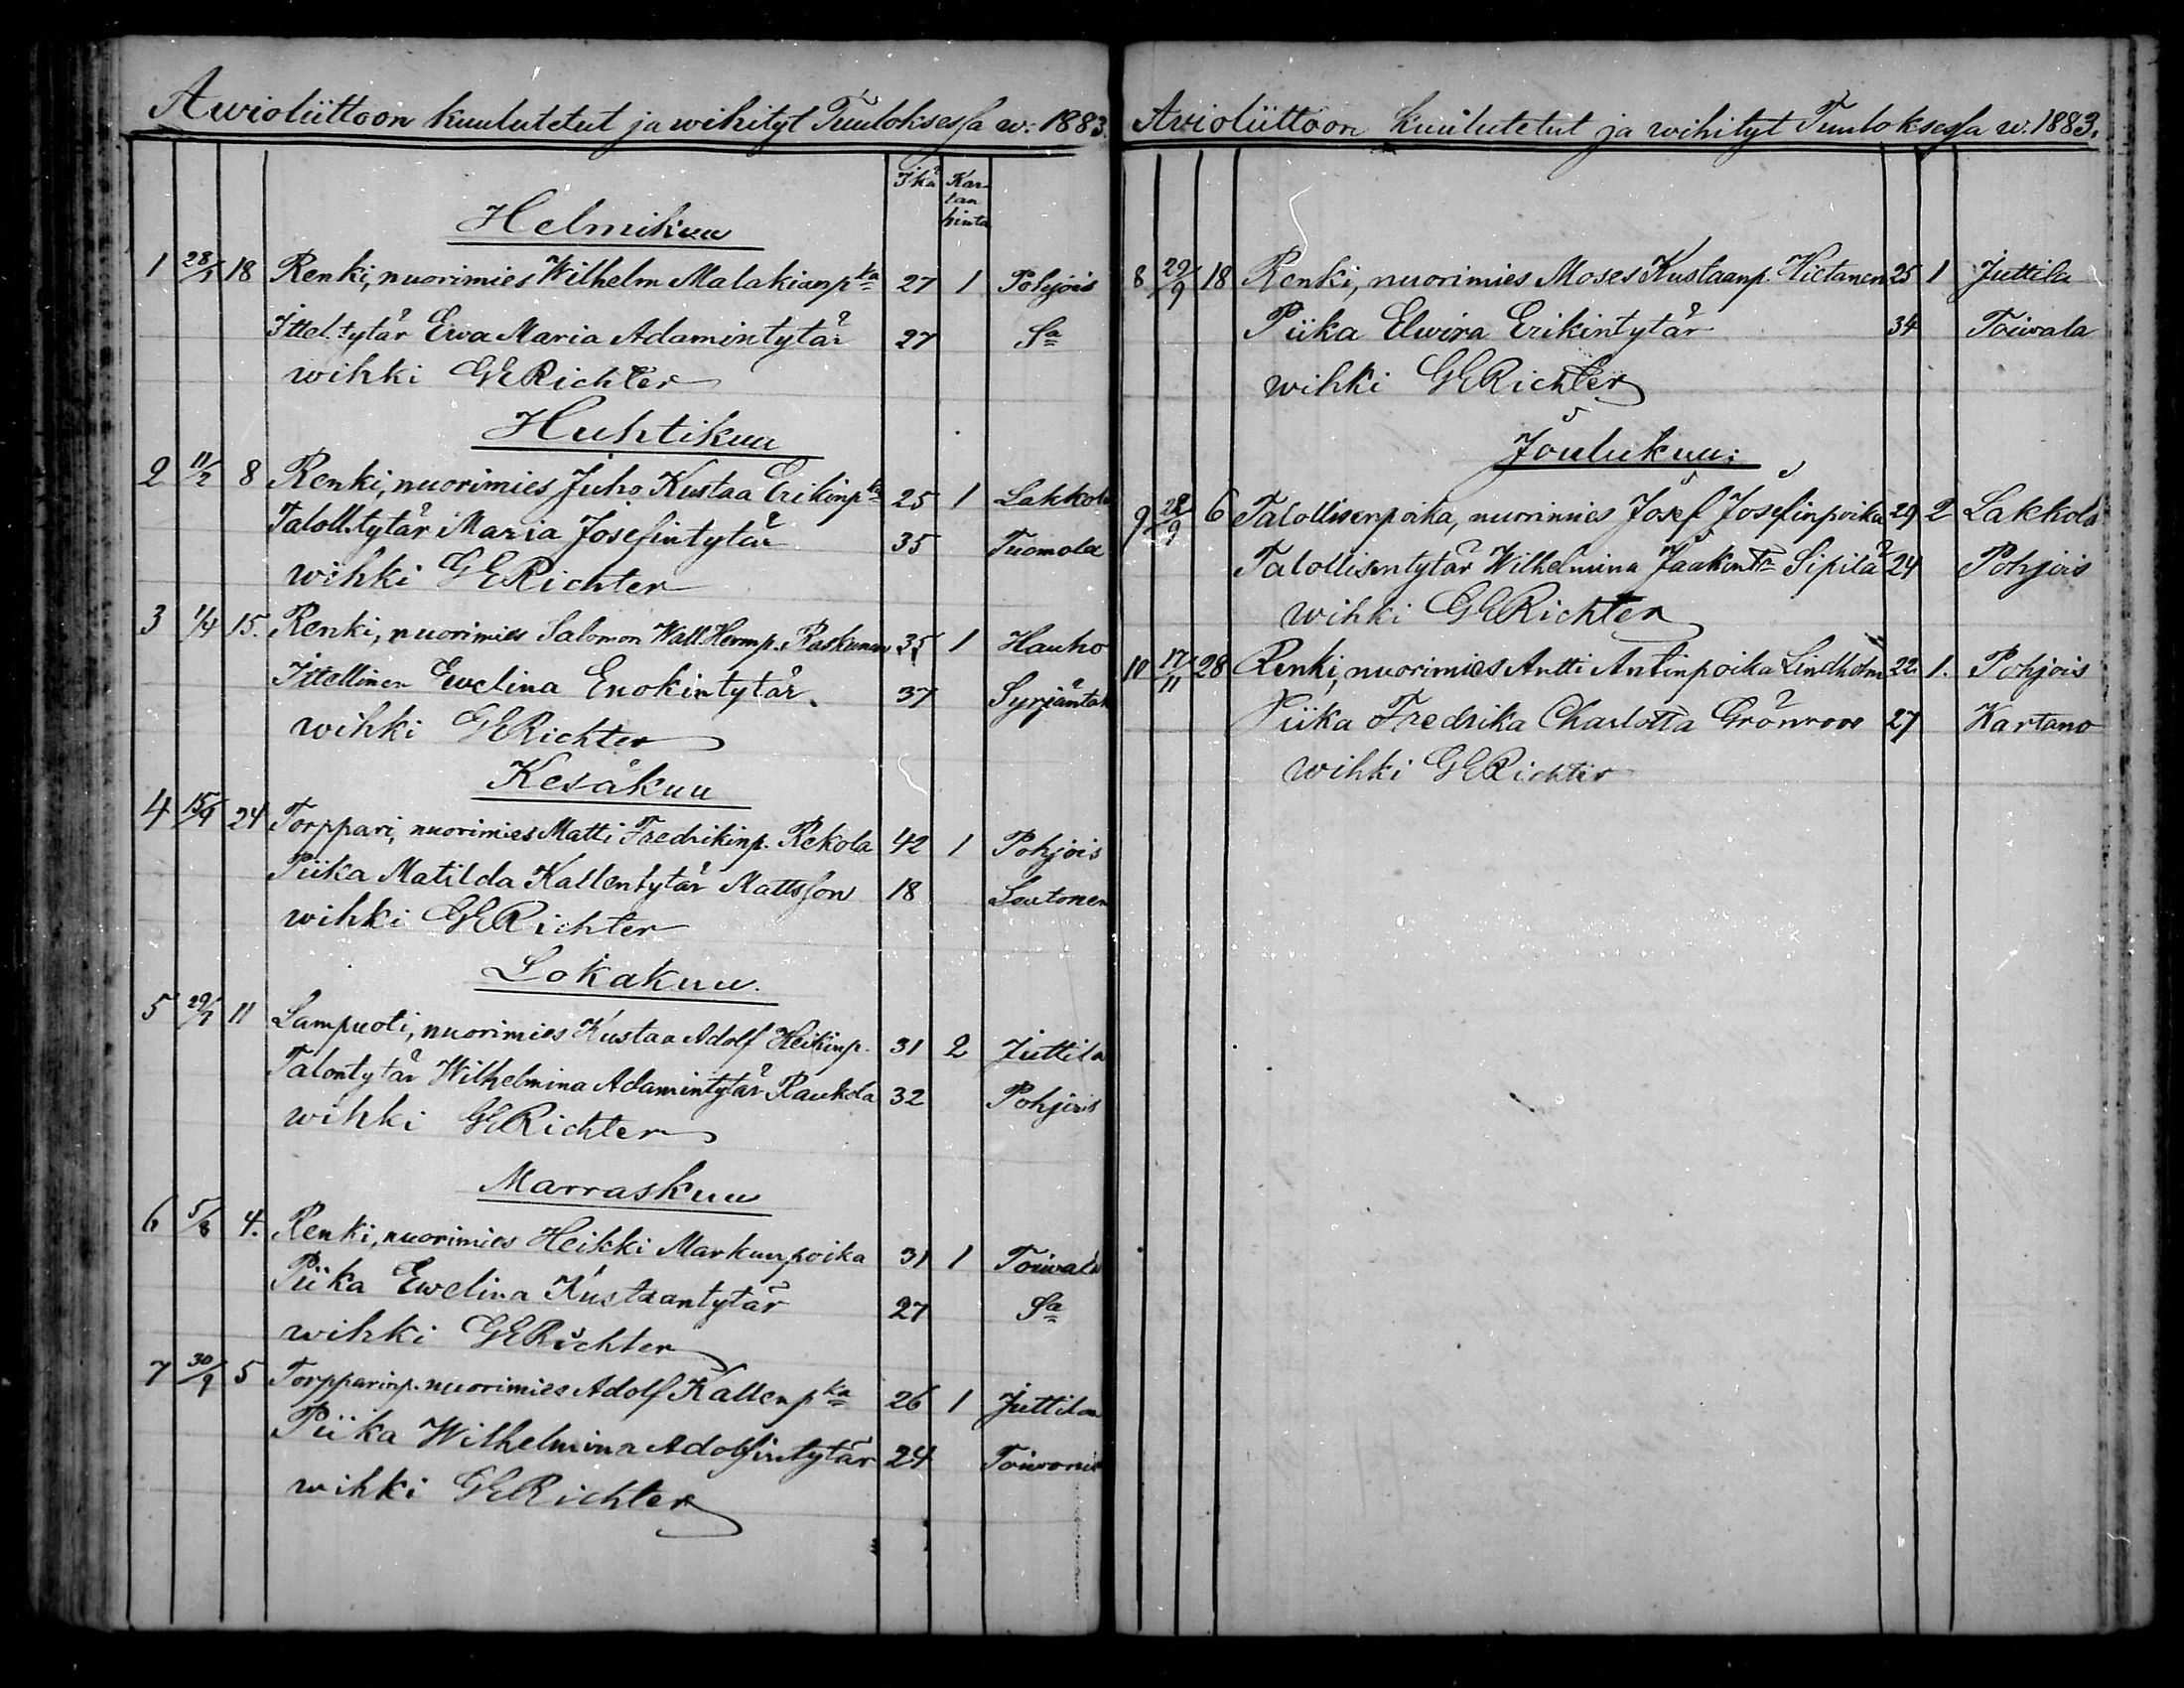 Awioliittoon kuulutetut ja wihityt Tuuloksessa w: 1883.
Ikä Kartan hinta
Helmikuu
1 28/1 18 Renki, nuorimies Wilhelm Malakianpka 27 1 Pohjois
Ittel. tytär Ewa Maria Adamintytär 27 Sa
wihki GERichter
Huhtikuu
2 11/2 8 Renki, nuorimies Juho Kustaa Erikinpka 25 1 Lakkola
Taloll. tytär Maria Josefintytär 35 Tuomola
wihki GERichter
3 1/4 15. Renki, nuorimies Salomon Wall. Hermp. Raskunen 35 1 Hauho
Ittellinen Ewelina Enokintytär. 37 Syrjäntak
wihki GERichter
Kesäkuu
4 15/4 24 Torppari, nuorimies Matti Fredrikinp. Rekola 42 1 Pohjois
Piika Matilda Kallentytär Mattsson 18 Sautonen
wihki GERichter
Lokakuu.
5 29/7 11 Lampuoti, nuorimies Kustaa Adolf Heikinp. 31 2 Juttila
Talontytär Wilhelmina Adamintytär Raukola 32 Pohjois
wihki GERichter
Marraskuu
6 5/8 4. Renki, nuorimies Heikki Markunpoika 31 1 Toiwala
Piika Ewelina Kustaantytär 27 Sa
wihki GERichter
7 30/9 5 Torpparinp. nuorimies Adolf Kallenpka 26 1 Juttila
Piika Wilhelmina Adolfintytär 24 Toiwonie
wihki GERichter
Avioliittoon kuulutetut ja wihityt Tuuloksessa w. 1883.
8 29/9 18 Renki, nuorimies Moses Kustaanp. Hietanen 25 1 Juttila
Piika Elwira Erikintytär 34 Toiwala
wihki GERichter
Joulukuu:
9 28/9 6 Talollisenpoika, nuorimies Josef Josefinpoika 29 2 Lakkola
Talollisentytär Wilhelmina Jaakontr Sipilä 24 Pohjois
wihki GERichter
10 17/11 28 Renki, nuorimies Antti Antinpoika Lindholm 22. 1. Pohjois
Piika Fredrika Charlotta Grönroos 27 Kartano
wihki GERichter